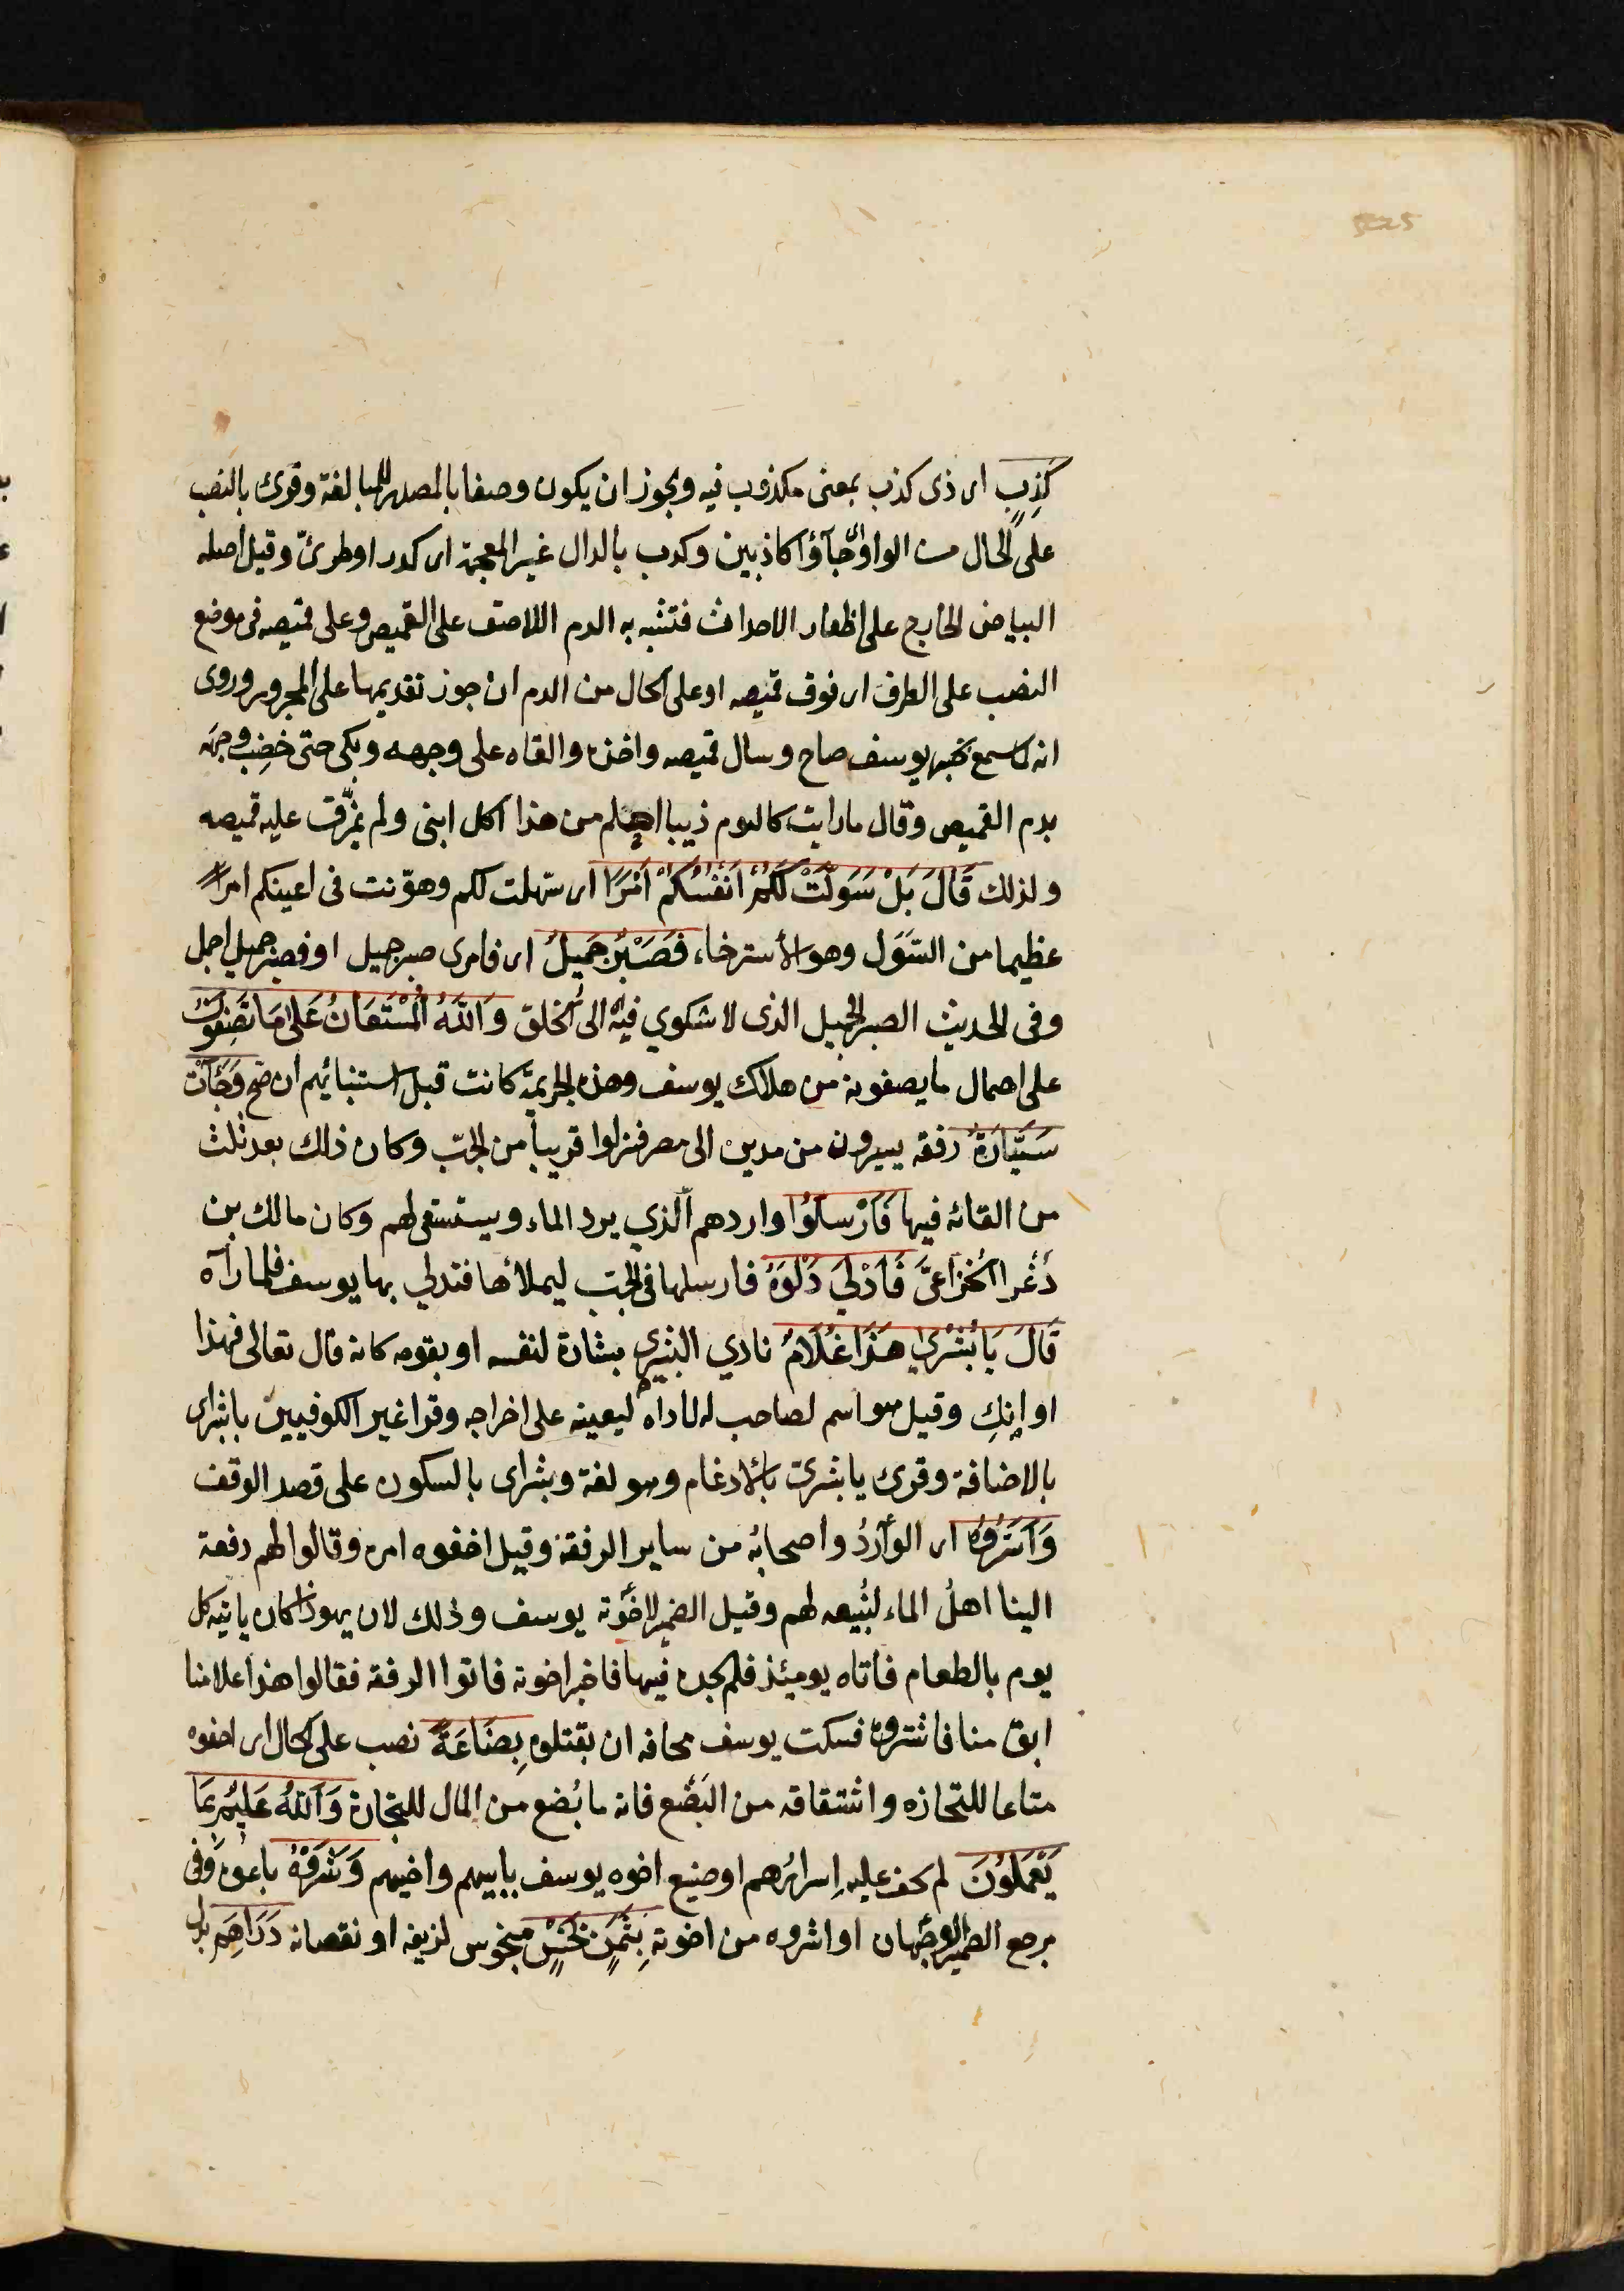 كَذِبٍ اى ذى كذب بمعنى مكذوب فيه ويجوز ان يكون وصفا بالمصدر للمبالغة وقرئ بالنصب
على الحال من الواو اى جآؤا كاذبين وكدب بالدال غير المعجمة اى كدر او طرىّ وقيل اصله
البياض الخارج على اظفار الاحداث فتشبه به الدم اللاصق على القميص وعلى قميصه فى موضع
النصب على الظرف اى فوق قميصه او على الحال من الدم ان جوز تقديمها على المجرور وروى
انه لما سمع بخبر يوسف صاح وسال قميصه واخذه والقاه على وجهه وبكى حتى خضب وجهه
بدم القميص وقال ما رايت كاليوم ذيبا احلم من هذا اكل ابنى ولم يمزّق عليه قميصه
ولذلك قَالَ بَلْ سَوَّلَتْ لَكُمْ أَنْفُسُكُمْ أَمْرًا اى سهّلت لكم وهوّنت فى اعينكم امرًا
عظيما من السَوَل وهو الأسترخاء فَصَبْرٌ جَمِيلٌ اى فامرى صبر جميل او فصبر جميل اجمل
وفى الحديث الصبر الجميل الذى لا شكوي فيه الى الخلق وَاللَّهُ الْمُسْتَعَانُ عَلَى مَا تَصِفُونَ
على احمال ما يصفونه من هلاك يوسف وهذه الجريمة كانت قبل استنبائهم ان صح وَجَآءَتْ
سَيَّارَةٌ رفقه يسيرون من مدين الى مصر فنزلوا قريباً من الجبّ وكان ذلك بعد ثلث
من القائه فيها فَأَرْسَلُوا واردهم الّذي يرد الماء ويستسقى لهم وكان مالك بن
ذُعْر الخُزاعىّ فَأَدْلَى دَلْوَهُ فارسلها فى الجبّ ليملأها فتدلي بها يوسف فلما رآه
قَالَ يَا بُشْرَيٰ هَذَا غُلَامٌ نادي البشري بشارة لنفسه او بقومه كانه قال تعالى فهذا
اوانِكِ وقيل هو اسم لصاحب له ناداه ليعينه على اخراجه وقرا غير الكوفيين يا بشراى
بالاضافة وقرئ يا بشرىّ بالأدغام وهو لغة وبشراى بالسكون على قصد الوقف
وَأَسَرُّوهُ اى الوآردُ واصحابُه من ساير الرفقة وقيل اخفوه امره وقالوا لهم دفعة
الينا اهلُ الماء لنُبيعه لهم وقيل الضمير لاخْوَته يوسف وذلك لان يهوذا كان ياتيه كل
يوم بالطعام فأتاه يومئذ فلم يجده فيها فاخبر اخوته فاتوا الرفقه فقالوا هذا غلامنا
ابق منا فاشتروه فسكت يوسف مخافه ان يقتلوه بِضَاعَةً نصب على الحال اى اخفوه
متاعا للتجازه واشتقاقه من البَضْع فانه ما بُضع من المال للتجارة وَاللَّهُ عَلِيمٌ بِمَا
يَعْمَلُونَ لم يخف عليه إسرارُهم او صنيع اخوه يوسف بابيهم واخيهم وَشَرَوْهُ باعوه وَفى
مرجع الضمير الوجهان او اشتروه من اخوته بِثَمَنٍ بَخْسٍ مبخوس لزيفه او نقصانه دَرَاهِمَ بدل